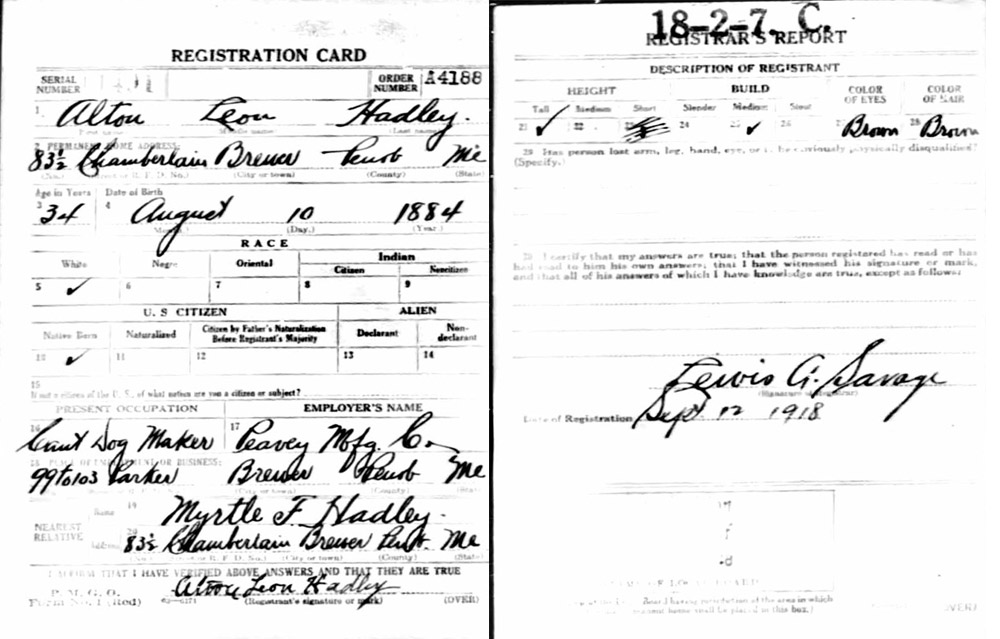 REGISTRATION CARD
SERIAL NUMBER
ORDER NUMBER A4188
1 Alton Leon Hadley.
First name Middle name Last name
2 PERMANENT HOME ADDRESS:
83½ Chamberlain Brewer Penob Me
(No.) (Street or R. F. D. No.) (City or town) (County) (State)
Age in Years Date of Birth
3 34 4 August 10 1884
(Month.) (Day.) (Year.)
RACE
White Negro Oriental Indian
Citizen Noncitizen
5 ✓ 6 7 8 9
U. S. CITIZEN ALIEN
Native Born Naturalized Citizen by Father's Naturalization Before Registrant's Majority Declarant Non-declarant
10 ✓ 11 12 13 14
15
If not a citizen of the U. S., of what nation are you a citizen or subject?
PRESENT OCCUPATION EMPLOYER'S NAME
16 Cant Dog Maker 17 Peavey Mfg. Co.
18 PLACE OF EMPLOYMENT OR BUSINESS:
99 to 103 Parker Brewer Penob Me
(City or town) (County) (State)
NEAREST RELATIVE
Name 19 Myrtle F. Hadley.
Address 20 83½ Chamberlain Brewer Me
(Street or R. F. D. No.) (City or town) (County) (State)
I AFFIRM THAT I HAVE VERIFIED ABOVE ANSWERS AND THAT THEY ARE TRUE
P. M. G. O.
Form No. 1 (Red) Alton Leon Hadley
(Registrant's signature or mark) (OVER)
18-2-7. C.
REGISTRAR'S REPORT
DESCRIPTION OF REGISTRANT
HEIGHT BUILD COLOR OF EYES COLOR OF HAIR
Tall Medium Short Slender Medium Stout
21 ✓ 22 23 24 25 ✓ 26 27 Brown 28 Brown
29 Has person lost arm, leg, hand, eye, or is he obviously physically disqualified?
(Specify.)
30 I certify that my answers are true; that the person registered has read or has
had read to him his own answers; that I have witnessed his signature or mark,
and that all of his answers of which I have knowledge are true, except as follows:
Lewis A. Savage
(Signature of Registrar)
Date of Registration Sept 12 1918
(OVER)